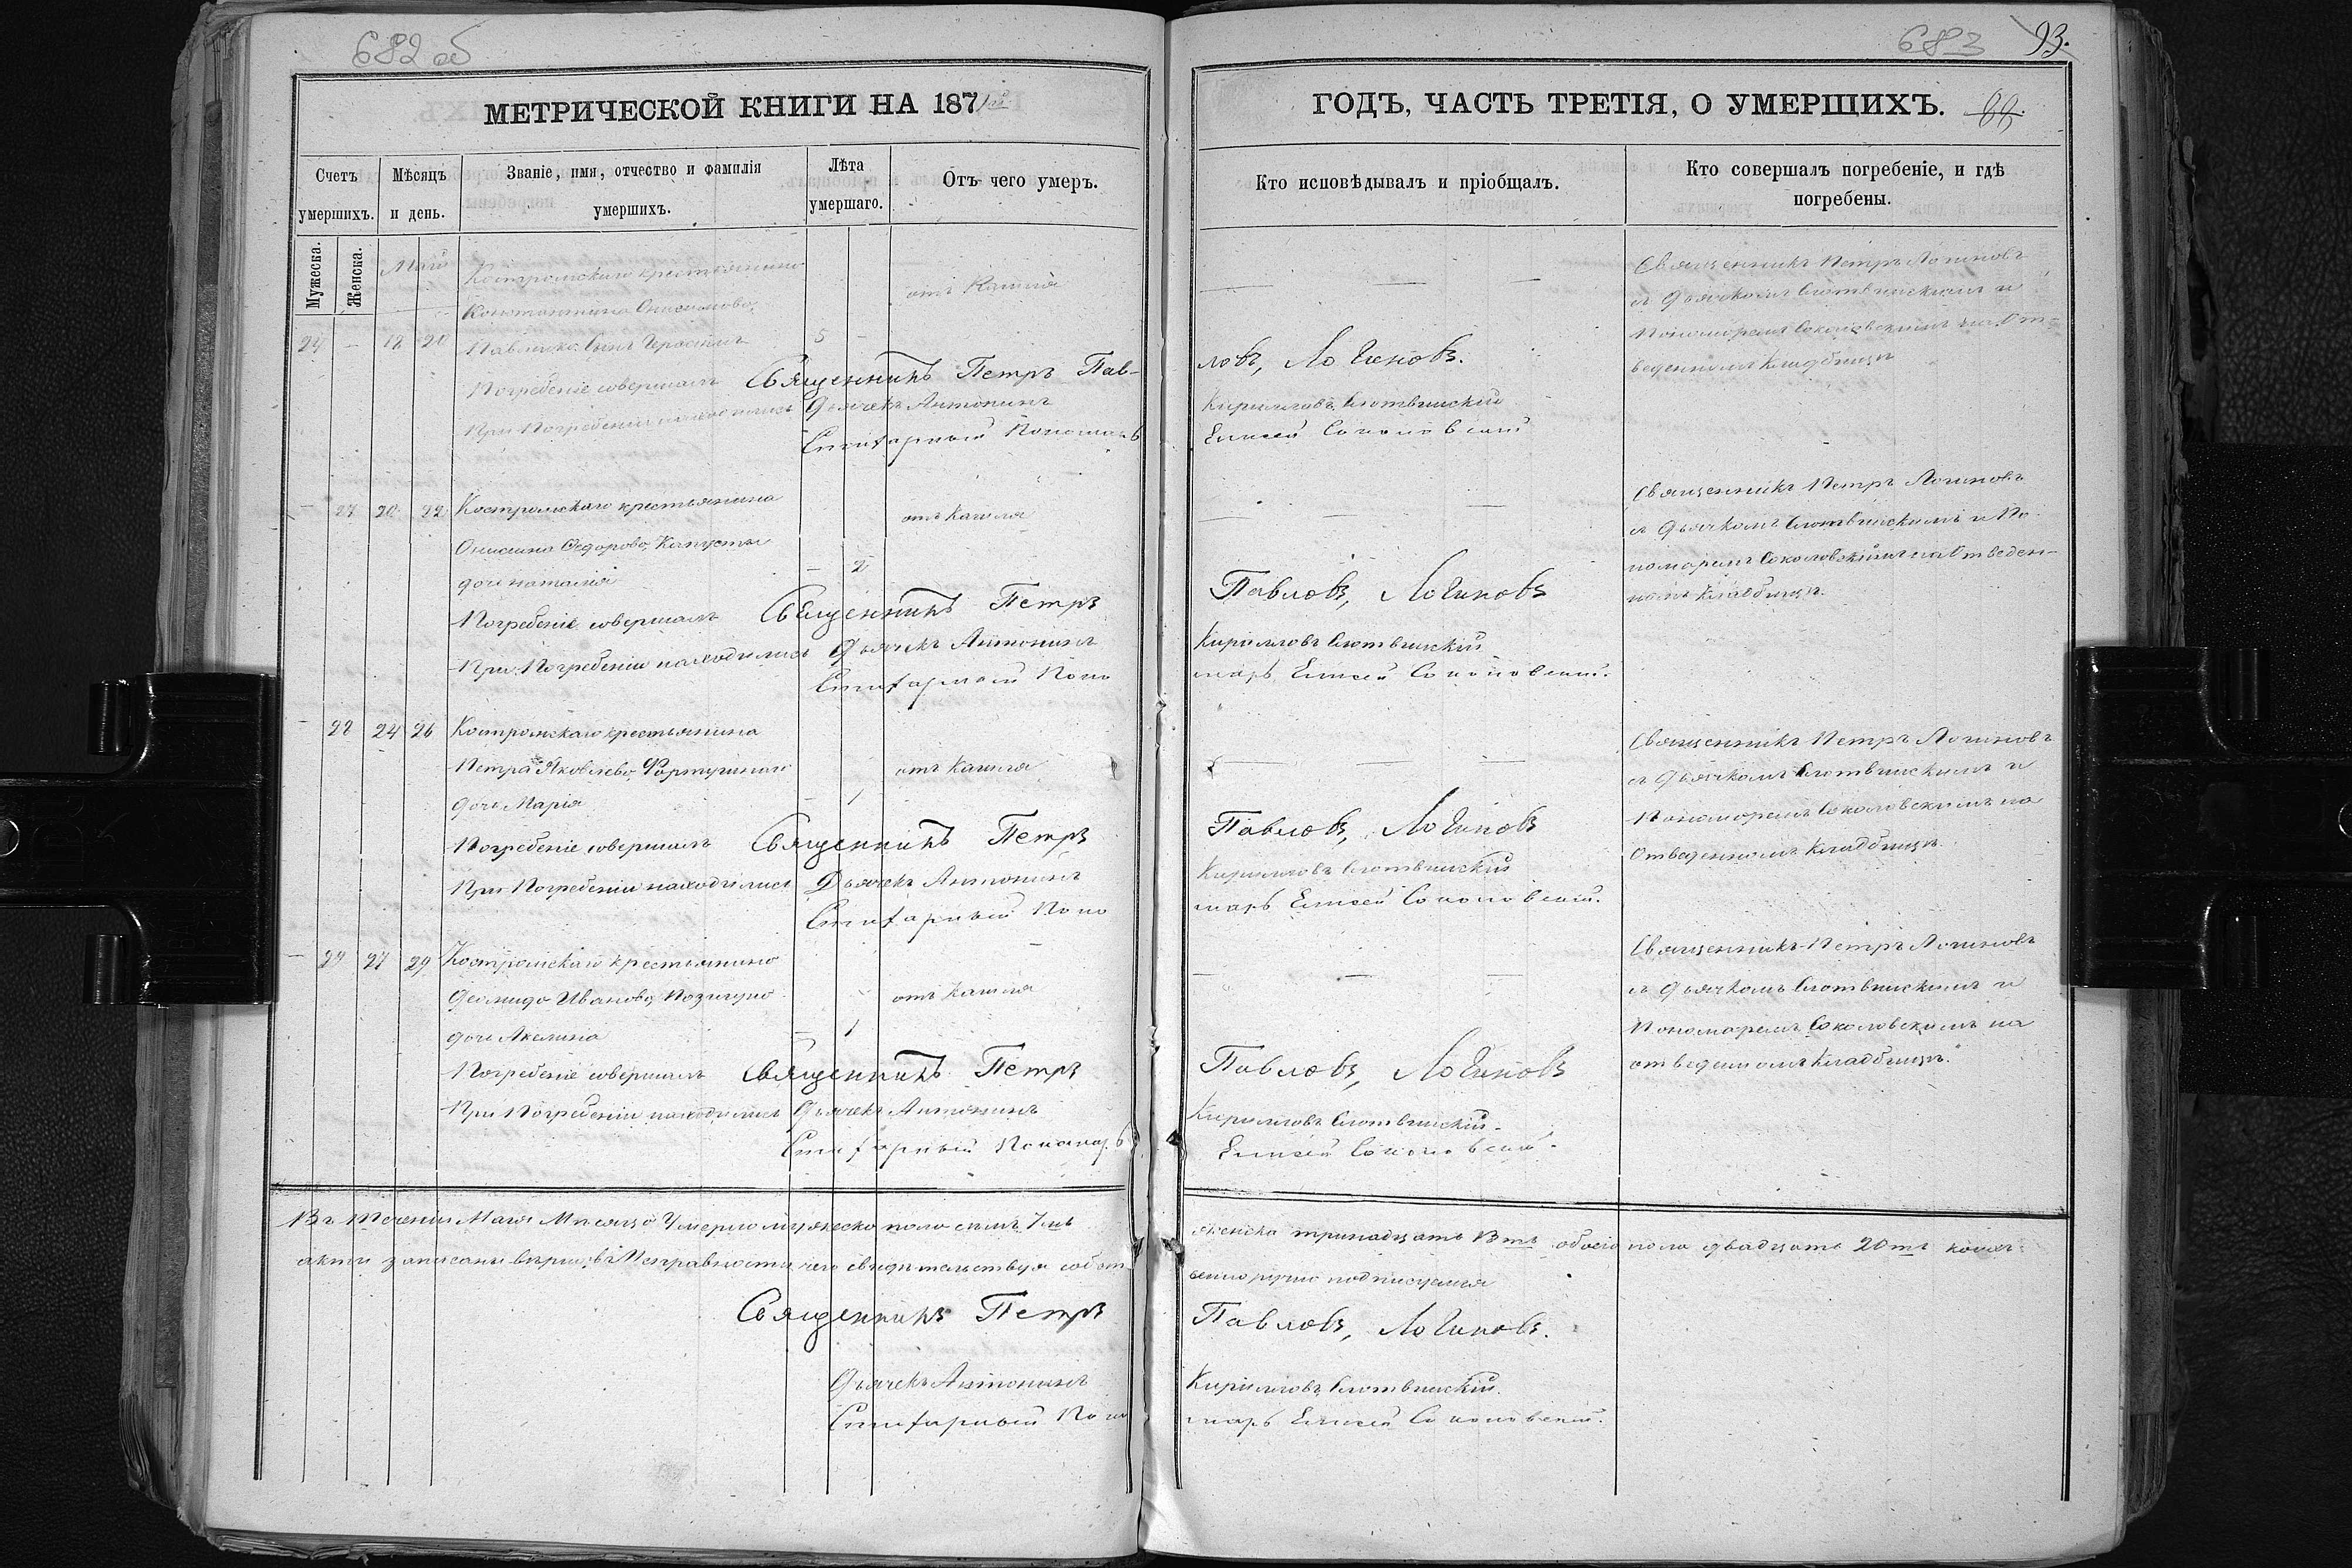 682 об
МЕТРИЧЕСКОЙ КНИГИ НА 1871й
Счетъ умершихъ.
Мѣсяцъ и день.
Званіе, имя, отчество и фамилія умершихъ.
Лѣта умершаго.
Отъ чего умеръ.
Мужеска.
Женска.
Май
Костромскаго крестьянина
Константина Онисимова
24 — 18 20 Павленка сынъ Герасимъ 5 —
отъ Кашля
Погребеніе совершалъ Священникъ Петръ Пав-
При Погребеніи находились Дьячекъ Антонинъ
Стихарный Пономарь
— 27 20 22 Костромскаго крестьянина
отъ Кашля
Онисима Федорова Капусты
дочь Наталія — 2
Погребеніе совершалъ Священникъ Петръ
При Погребеніи находились Дьячекъ Антонинъ
Стихарный Поно
— 28 24 26 Костромскаго крестьянина
Петра Яковлева отъ Кашля
дочь Марія — 1
Погребеніе совершалъ Священникъ Петръ
При Погребеніи находились Дьячекъ Антонинъ
Стихарный Поно
— 29 27 29 Костромскаго крестьянина
Иванова отъ Кашля
дочь Акелина — 1
Погребеніе совершалъ Священникъ Петръ
При Погребеніи находились Дьячекъ Антонинъ
Стихарный Пономарь
Въ теченіи Мая Мѣсяца Умерло мужеска пола семъ 7мь
акти записани вѣрно, въ Исправности чего свидѣтельствуя собст
Священникъ Петръ
Дьячекъ Антонинъ
Стихарный Поно
683
93.
ГОДЪ, ЧАСТЬ ТРЕТІЯ, О УМЕРШИХЪ.
Кто исповѣдывалъ и пріобщалъ.
Кто совершалъ погребеніе, и гдѣ погребены.
Священникъ Петръ Логиновъ
съ Дьячкомъ Слотвинскимъ и
Пономаремъ Соколовскимъ на От-
веденномъ Кладбищѣ
ловъ, Логиновъ.
Кирилловъ Слотвинскій
Елисей Соколовскій
Священникъ Петръ Логиновъ
съ Дьячкомъ Слотвинскимъ и По-
номаремъ Соколовскимъ на Отведен-
номъ Кладбищѣ.
Павловъ, Логиновъ
Кирилловъ Слотвинскій
марь Елисей Соколовский.
Священникъ Петръ Логиновъ
съ Дьячкомъ Слотвинскимъ и
Пономаремъ Соколовскимъ на
Отведенномъ Кладбищѣ.
Павловъ, Логиновъ
Кирилловъ Слотвинскій
марь Елисей Соколовский.
Священникъ Петръ Логиновъ
съ Дьячкомъ Слотвинскимъ и
Пономаремъ Соколовскимъ на
отведенномъ Кладбищѣ.
Павловъ, Логиновъ
Кирилловъ Слотвинскій.
Елисей Соколовский.
женска тринадцать 13ть обоего пола двадцать 20ть
венно ручно подписуемся
Павловъ, Логиновъ.
Кирилловъ Слотвинскій.
марь Елисей Соколовский.